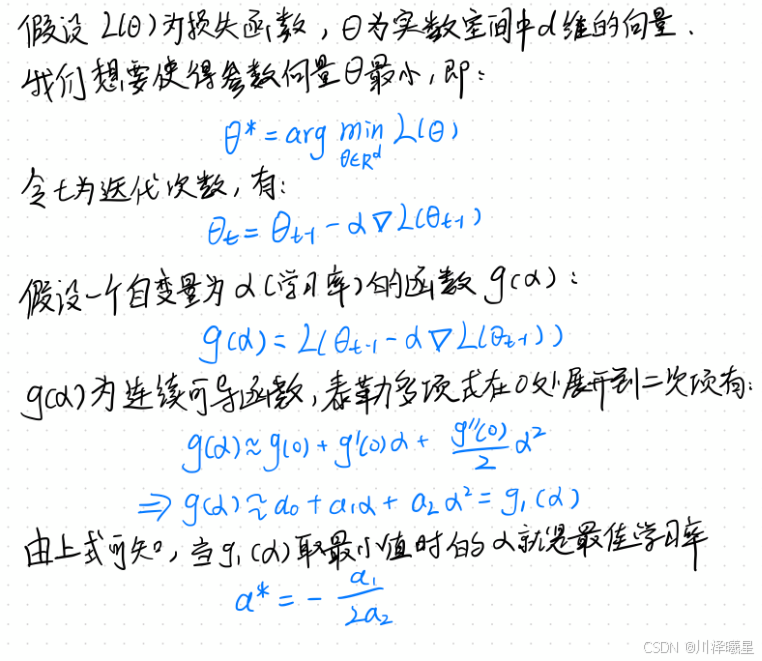 假设 L(θ)为损失函数,θ为实数空间中d维的向量.
我们想要使得参数向量θ最小,即:
θ* = arg min L(θ)
θ∈R^d
令t为迭代次数,有:
θ_t = θ_{t-1} - α∇L(θ_{t-1})
假设一个自变量为α(学习率)的函数 g(α):
g(α) = L(θ_{t-1} - α∇L(θ_{t-1}))
g(α)为连续可导函数,泰勒多项式在0处展开到二次项有:
g(α) ≈ g(0) + g'(0)α + g''(0)/2 α²
⇒ g(α) ≈ a₀ + a₁α + a₂α² = g₁(α)
由上式可知,当g₁(α)取最小值时的α就是最佳学习率
α* = - a₁/2a₂
CSDN @川泽曦星